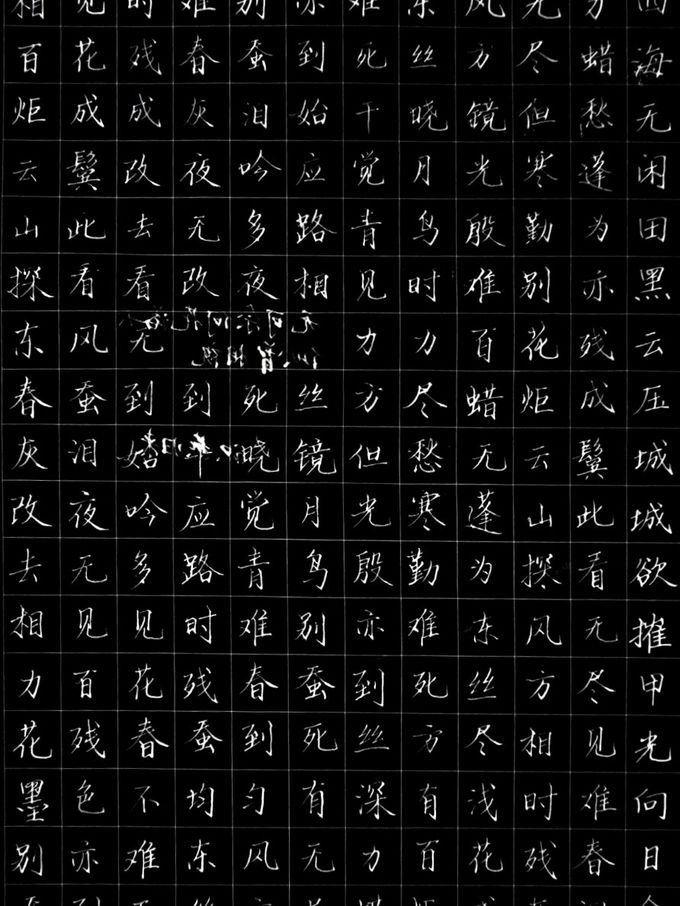 相见时难别亦难东风无力四
百花残春蚕到死丝方尽蜡海
炬成成灰泪始干晓镜但愁无
云鬓改夜吟应觉月光寒蓬闲
山此去无多路青鸟殷勤为田
探看看改夜相见时难别亦黑
东风无力力百花残云
春蚕到到死丝方尽蜡炬成压
灰泪始干晓镜但愁无云鬓城
改夜吟应觉月光寒蓬山此城
去无多路青鸟殷勤为探看欲
相见见时难别亦难东风无摧
力百花残春蚕到死丝方尽甲
花残春蚕到死丝方尽相见光
墨色不均匀有深有浅时难向
别亦难东风无力百花残春日